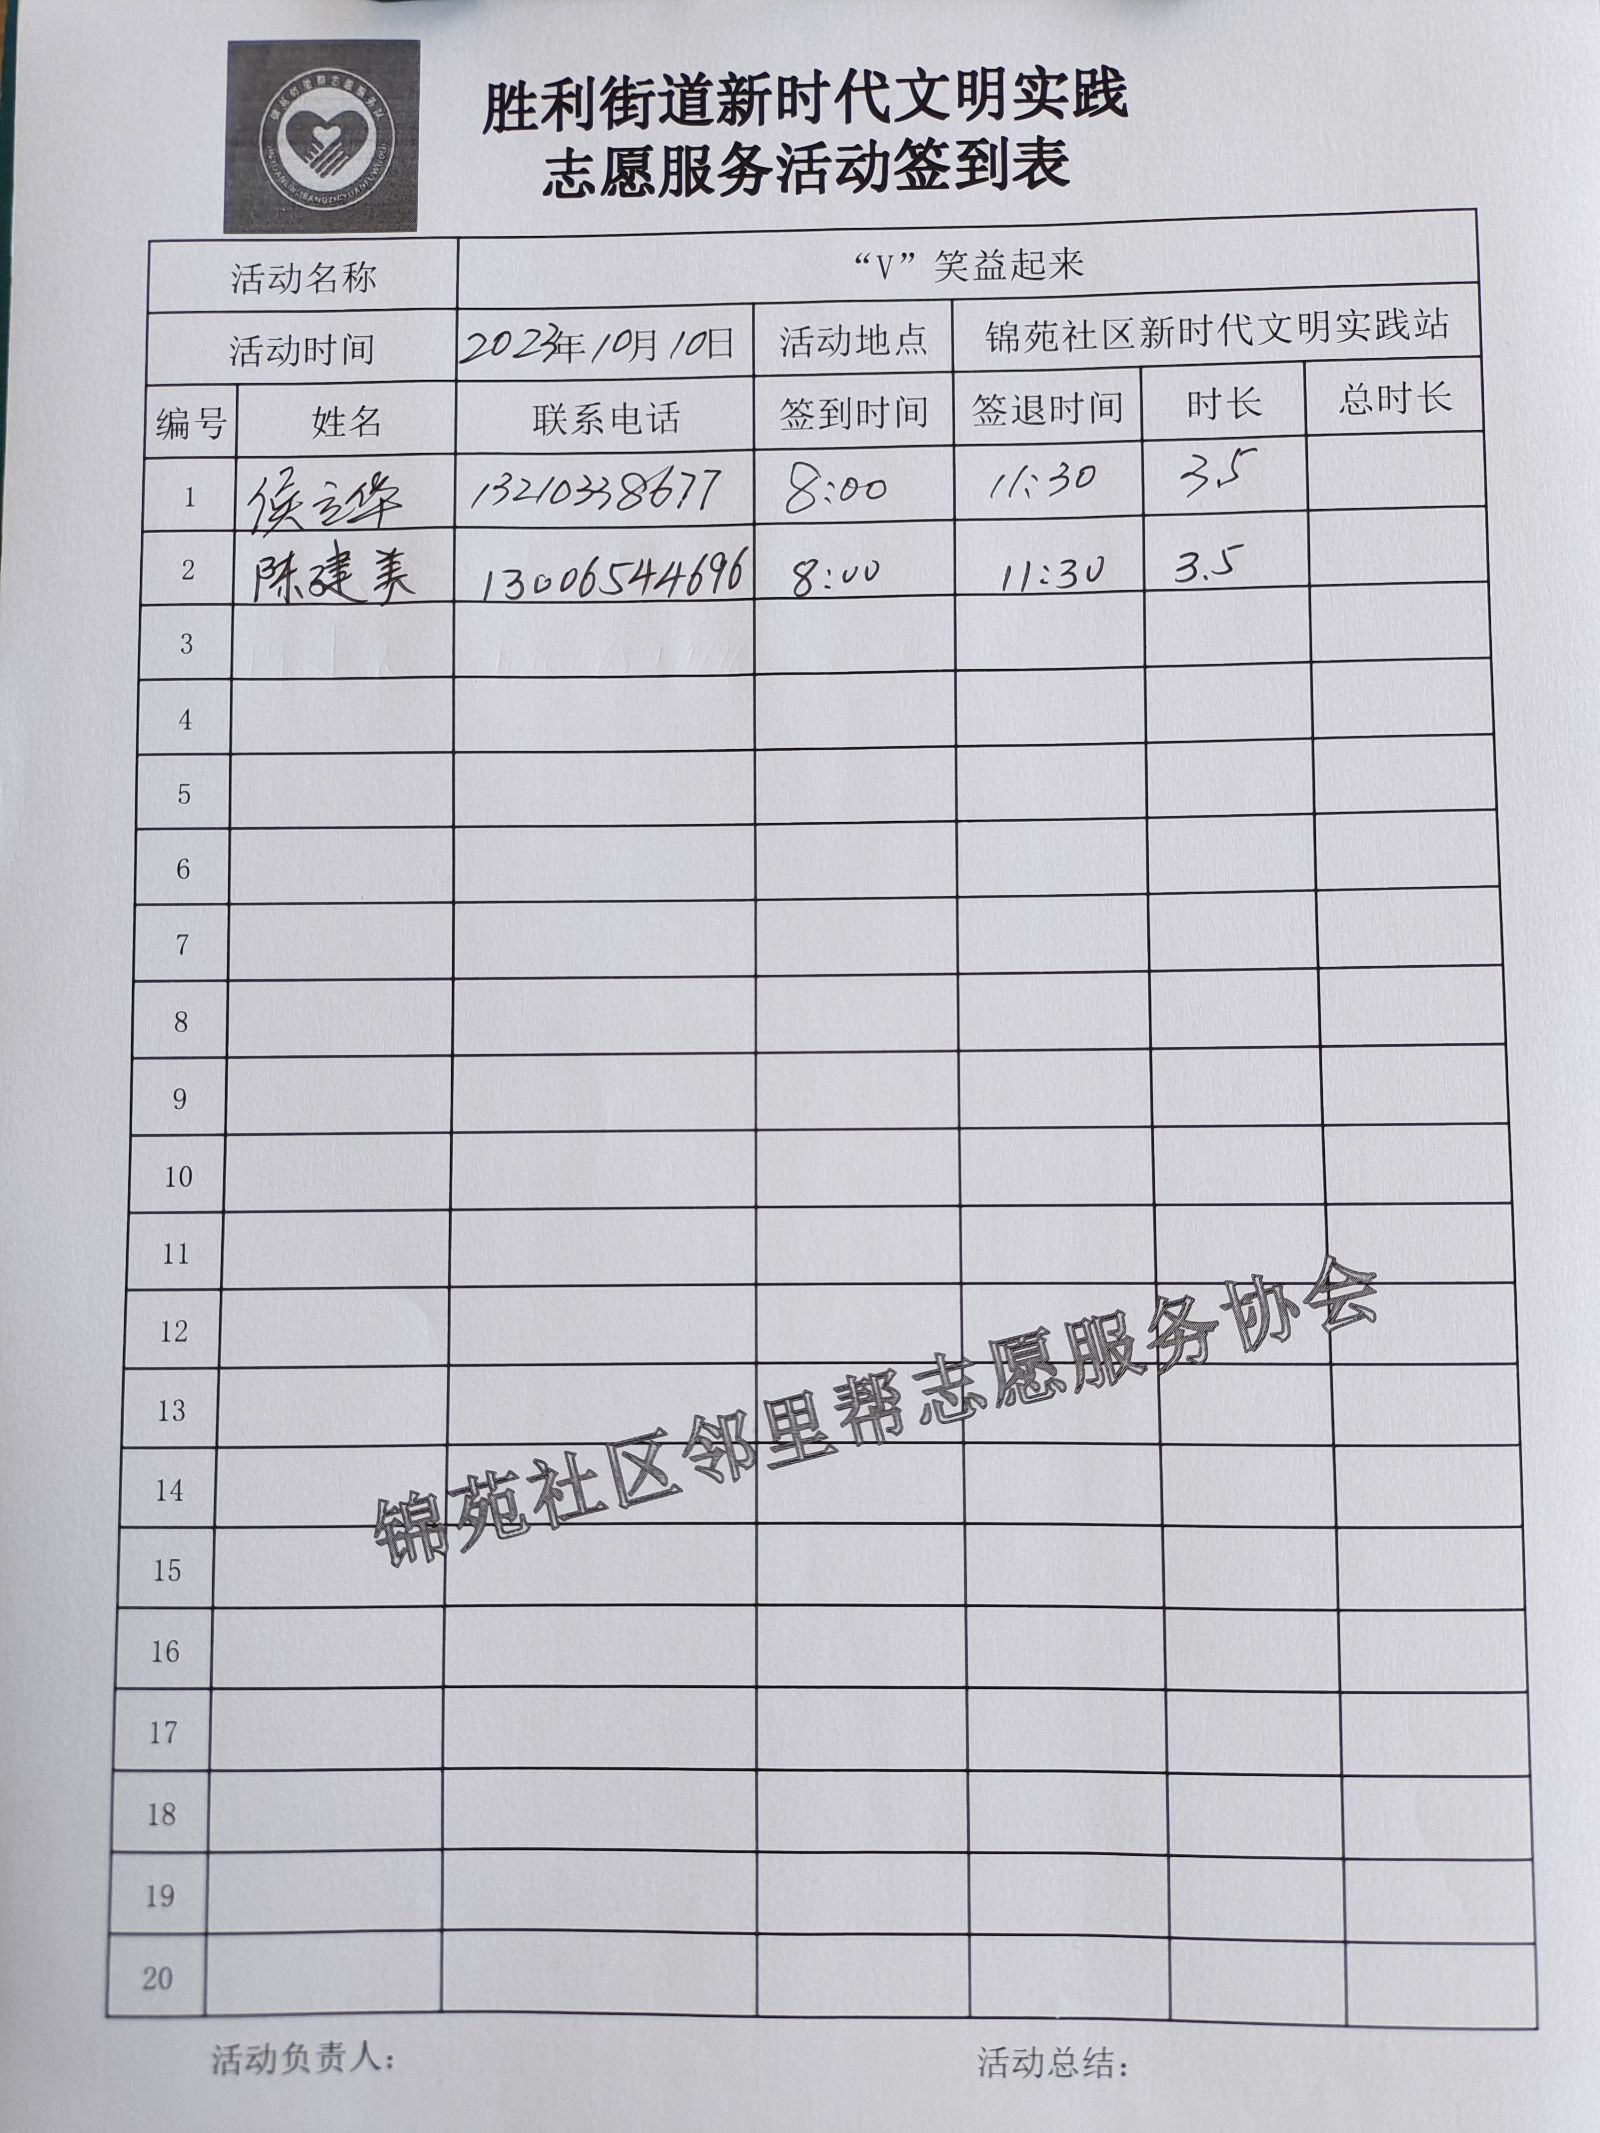 胜利街道新时代文明实践
志愿服务活动签到表
活动名称 “V”笑益起来
活动时间 2023年10月10日 活动地点 锦苑社区新时代文明实践站
编号 姓名 联系电话 签到时间 签退时间 时长 总时长
1 侯立华 13210338677 8:00 11:30 3.5
2 陈建美 13006544696 8:00 11:30 3.5
3
4
5
6
7
8
9
10
11
12
13
14
15
16
17
18
19
20
锦苑社区邻里帮志愿服务协会
活动负责人： 活动总结：